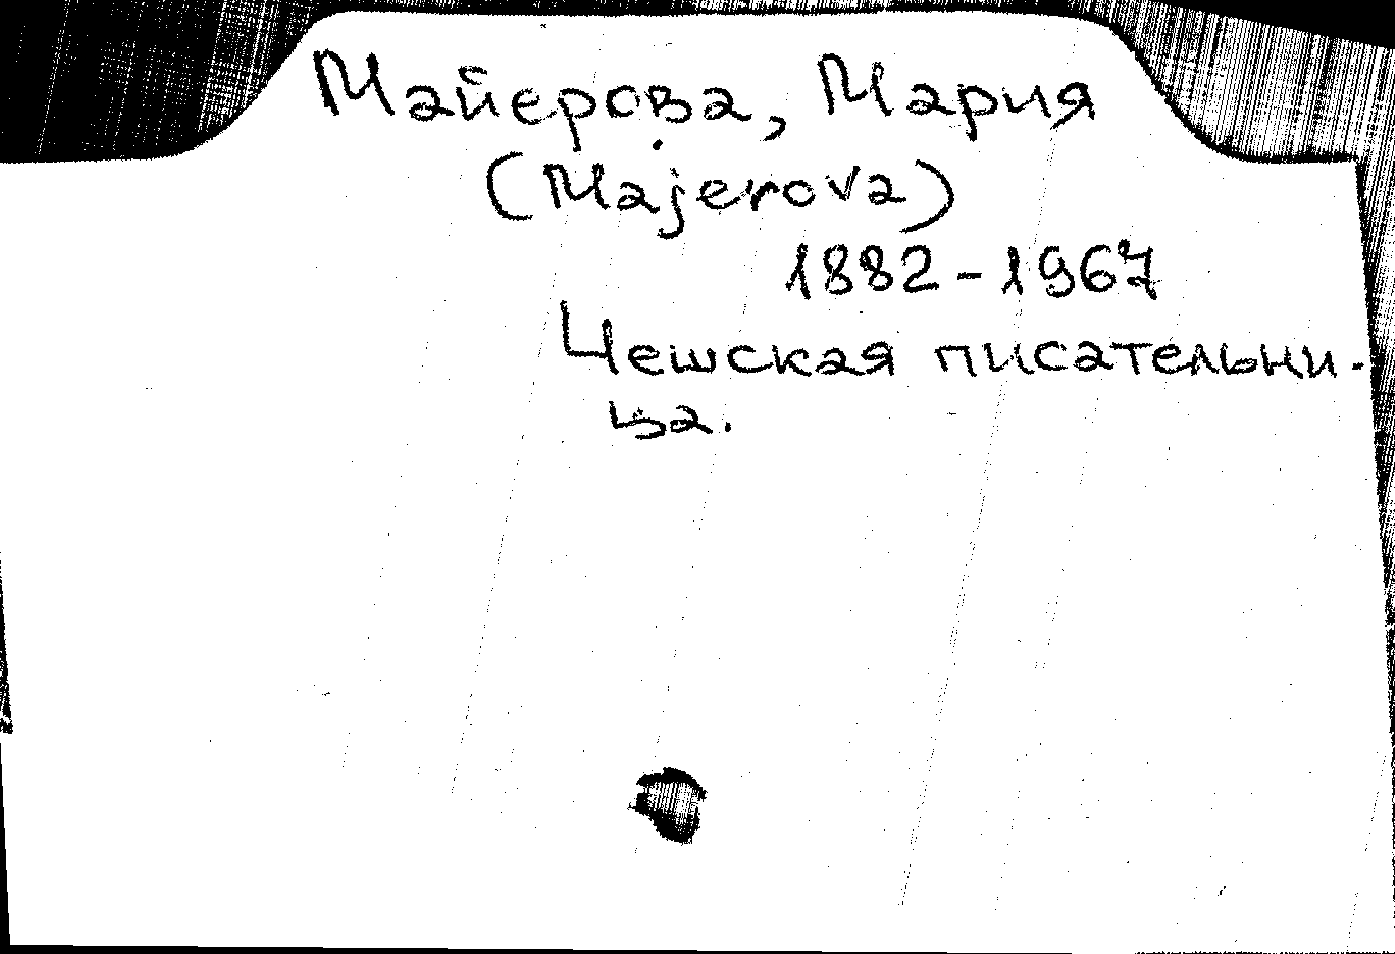 Майерова, Мария
(Majerova)
1882-1967
Чешская писательни-
ца.